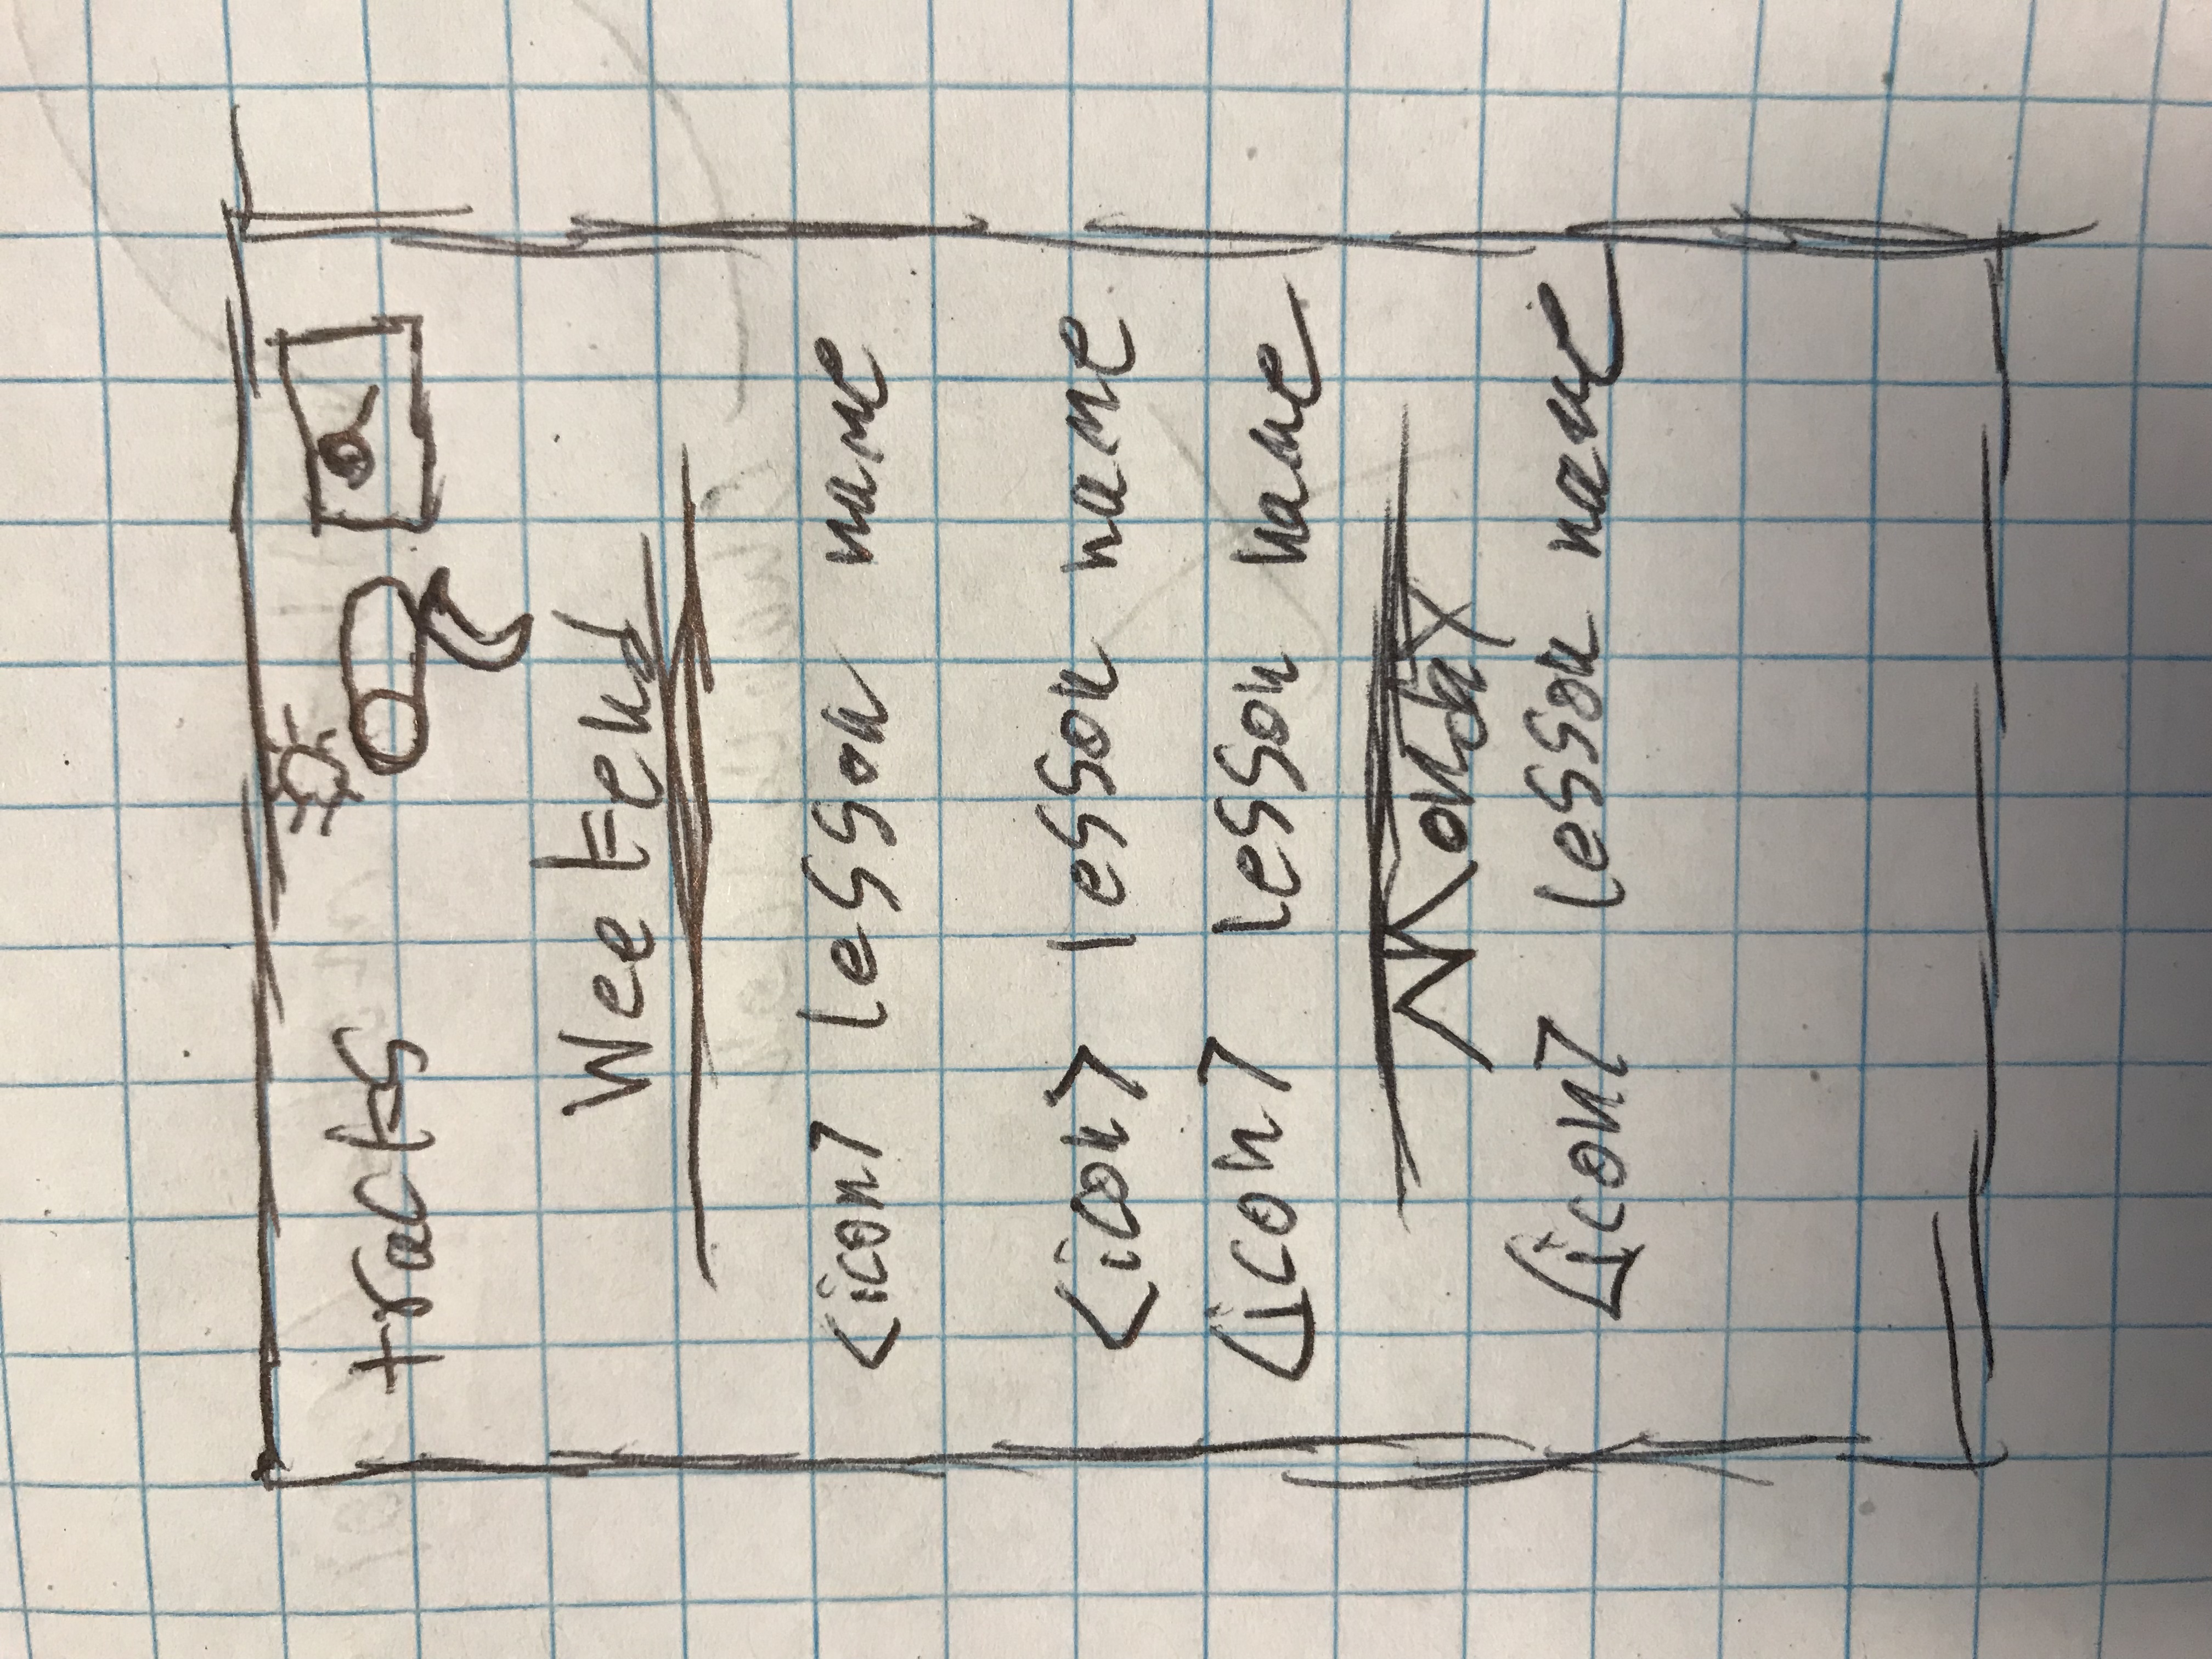 tracks
Weekend
<icon> lesson name
<icon> lesson name
<icon> lesson name
Monday
<icon> lesson name